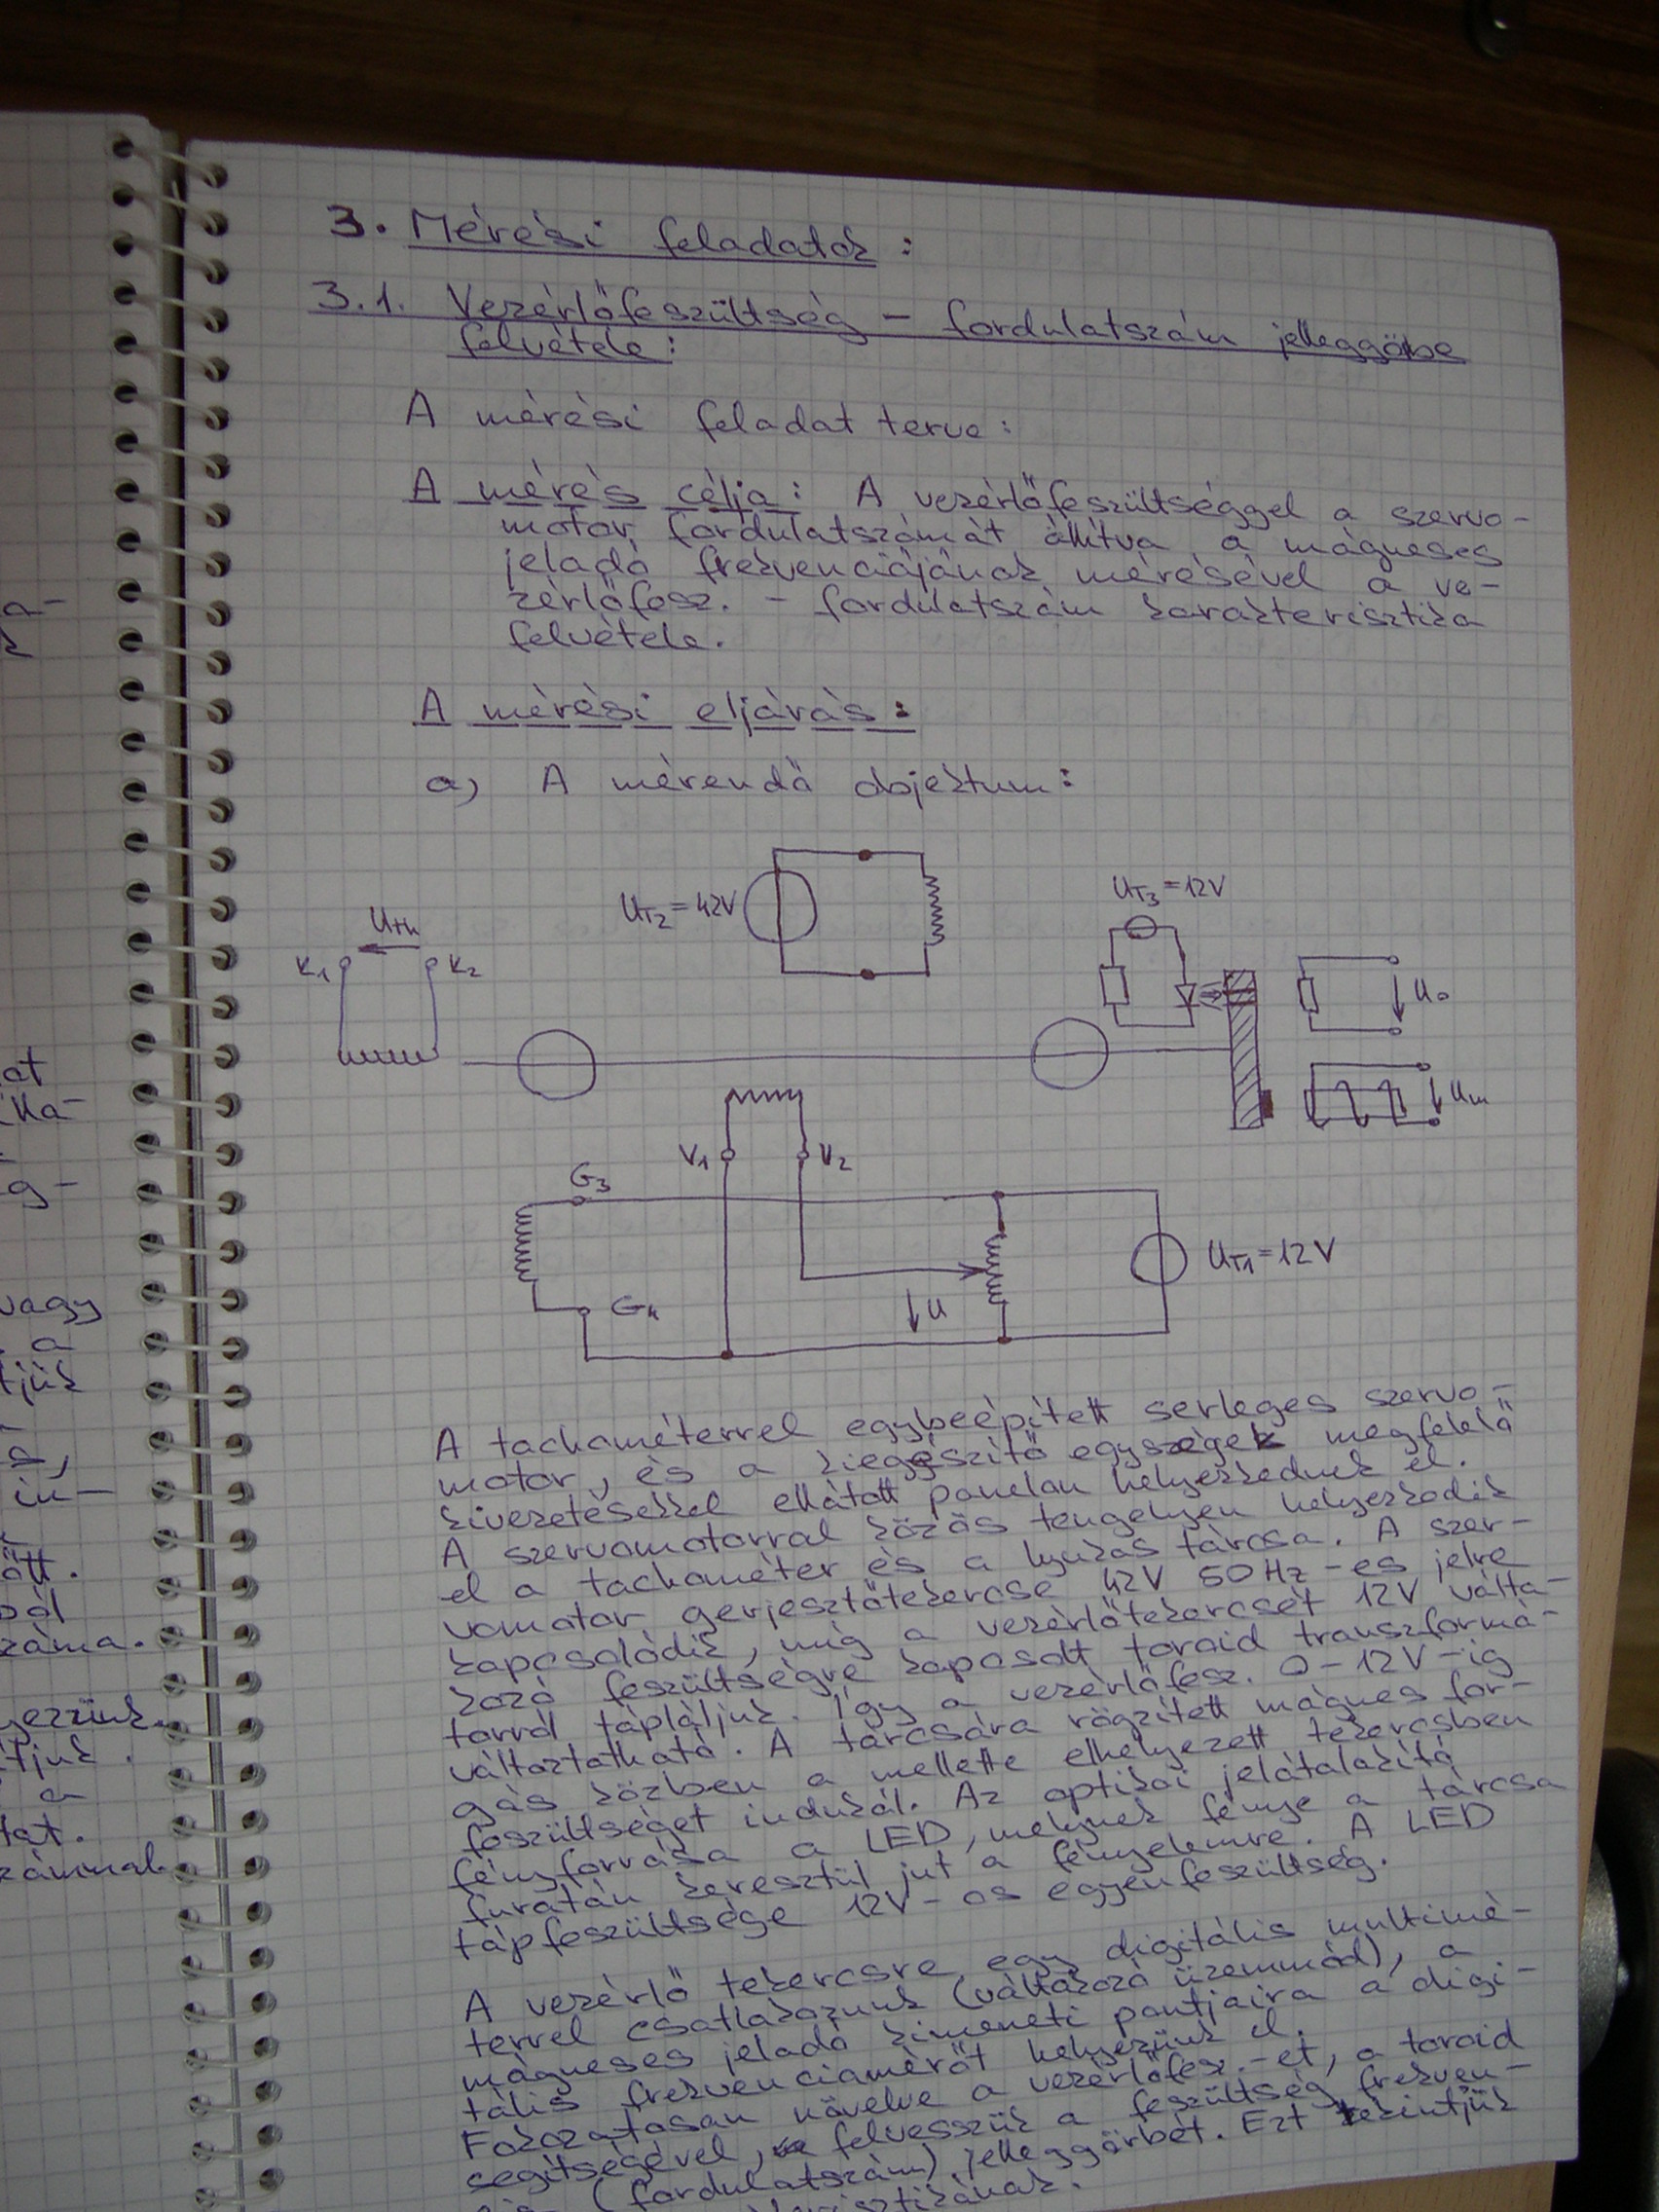 3. Mérési feladatok :
3.1. Vezérlőfeszültség – fordulatszám jelleggörbe
felvétele :
A mérési feladat terve :
A mérés célja : A vezérlőfeszültséggel a szervo-
motor fordulatszámát állítva, a mágneses
jeladó frekvenciájának mérésével a ve-
zérlőfesz. – fordulatszám karakterisztika
felvétele.
A mérési eljárás :
a) A mérendő objektum :
UT2 = 42V
UT3 = 12V
UTh
K1
K2
U0
Um
V1
V2
G3
UT1 = 12V
G4
U
A tachométerrel egybeépített serleges szervo-
motor, és a kiegészítő egységek megfelelő
kivezetésekkel ellátott panelan helyezkednek el.
A szervomotorral közös tengelyen helyezkedik
el a tachométer és a lyukas tárcsa. A szer-
vomotor gerjesztőtekercse 42V 50Hz-es jelre
kapcsolódik, míg a vezérlőtekercsét 12V válta-
kozó feszültségre kapcsolt toroid transzformá-
torról tápláljuk. Így a vezérlőfesz. 0-12V-ig
változtatható. A tárcsára rögzített mágnes for-
gás közben a mellette elhelyezett tekercsben
feszültséget indukál. Az optikai jelátalakító
fényforrása a LED, melynek fénye a tárcsa
furatán keresztül jut a fényelemre. A LED
tápfeszültsége 12V-os egyenfeszültség.
A vezérlő tekercsre egy digitális multimé-
terrel csatlakozunk (váltakozó üzemmód), a
mágneses jeladó kimeneti pontjaira a digi-
tális frekvenciamérőt helyezünk el.
Fokozatosan növelve a vezérlőfesz.-et, a toroid
segítségével, felvesszük a feszültség frekven-
(fordulatszám) jelleggörbét. Ezt tekintjük
a-
k
at
Ka-
g-
vagy
a
tjük
s,
in-
ött.
ból
záma.
gezzük
tjuk.
a
tat.
zámmal